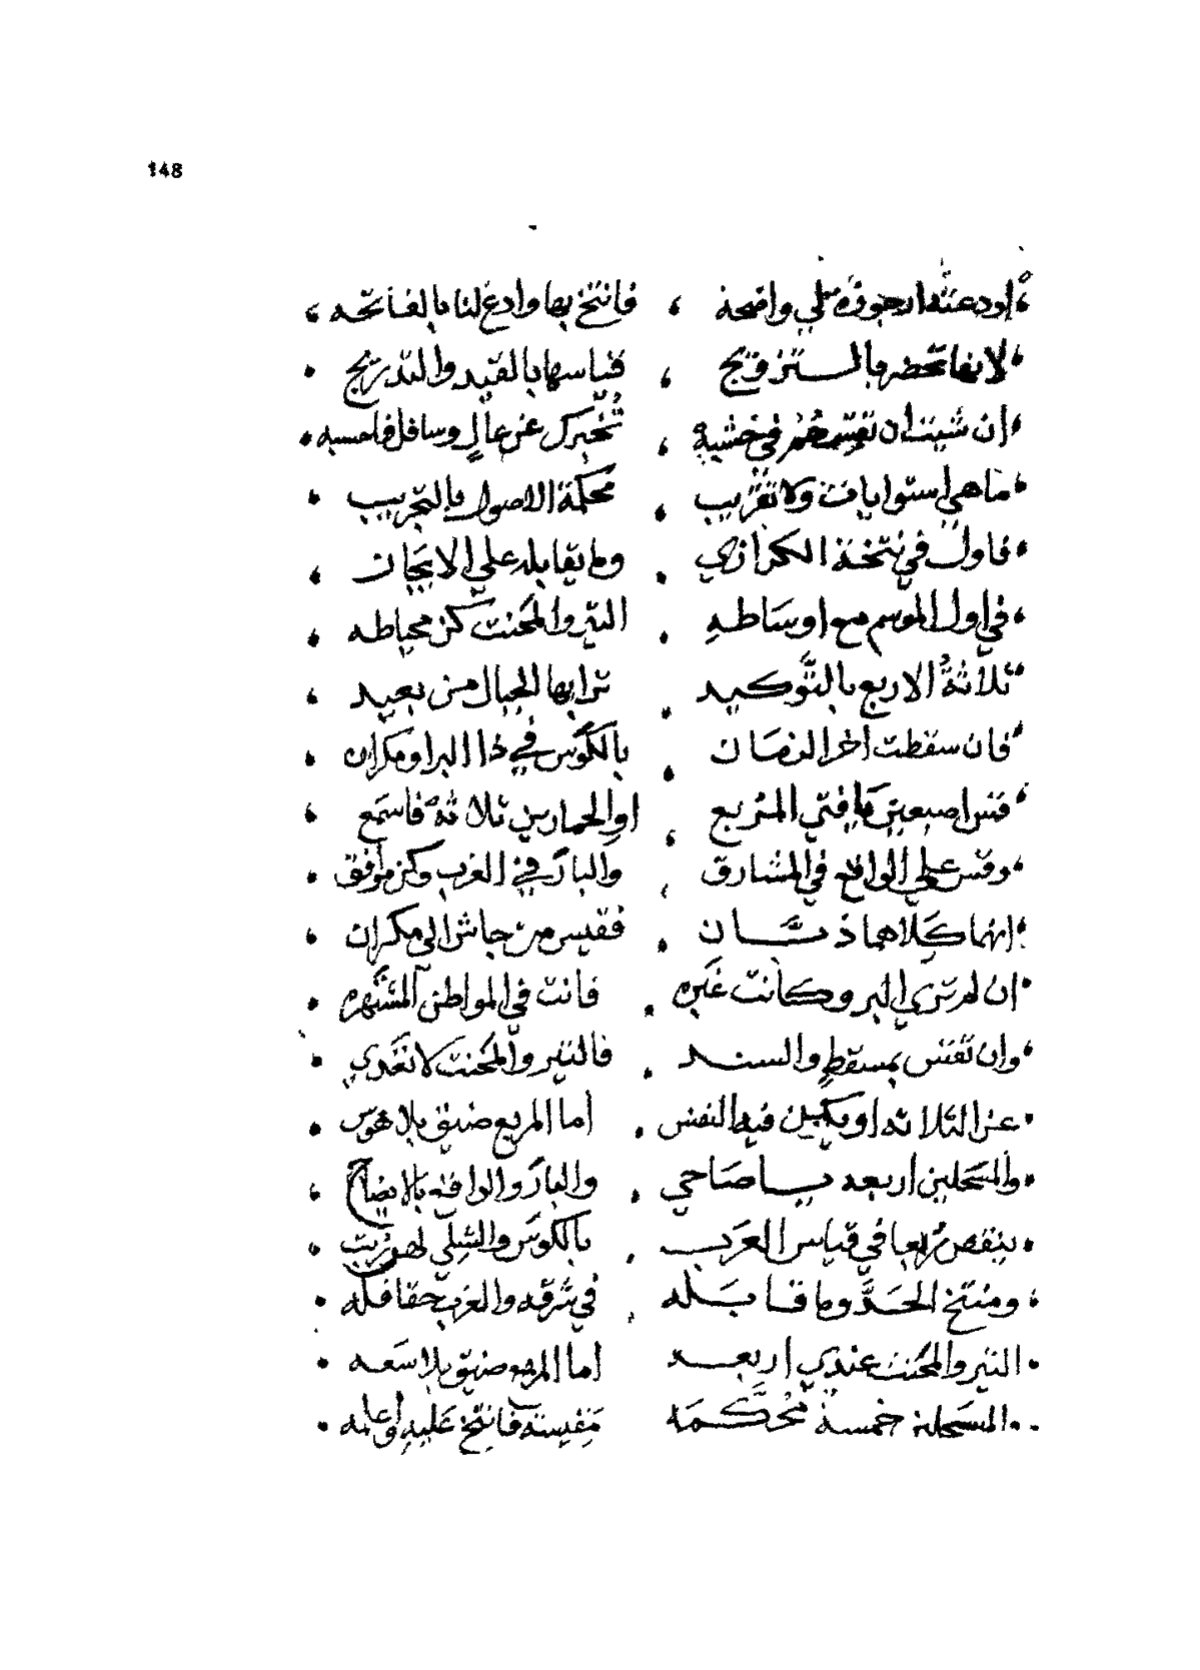 148
اودعته ارجوزة لي واضحة ، فانتخ بها وادع لنا بالفاتحه ،
لانها تحضر بالستزويج ، قياسها بالقيد والتدريج .
ان شيت ان تقسهم في خشبه ، تخبرك عن عال وسافل فاحسبه .
ما هي استوايات ولا تقريب ، محكمة الاصول بالتجريب .
فاول في نتخة الكرازي . وما يقابله علي الايجاز ،
في اول الموسم مع اوساطه . النير والمحنث كن محياطه .
ثلاثة الاربع بالتوكيد . ترابها الجبال من بعيد ،
فان سقطت اخر الزمان . بالكوس في ذا البر او مكران .
فقس اصبعين يا فتي المربع ، او الحمارين ثلاثة فاسمع ،
وقس علي الواقع في المشارق ، والبار في الغرب وكن موافق .
انهما كلاهما ذبان . فقيس من جاش الى مكران .
ان لم تري البر وكانت غبره . فانت في المواطن المشتهره .
وان تقس بمسقط والسند . فالنير والمحنث لا تعدي .
عن الثلاثه او يكن فيه النفس . اما المربع ضيق بلا هوس .
والمسحلين اربعه يا صاحي . والبار والواقع بالايضاح ،
ينقص ربعا في قياس العرب . بالكوس والشلي
ومنتخ الحد وما قابله . في شرقه والغرب حقا فله .
النير والمحنث عندي اربعه اما المربع ضيق بلا سعه .
المسحلة خمسة محكمه مقيسته فانتخ عليه واعلمه .